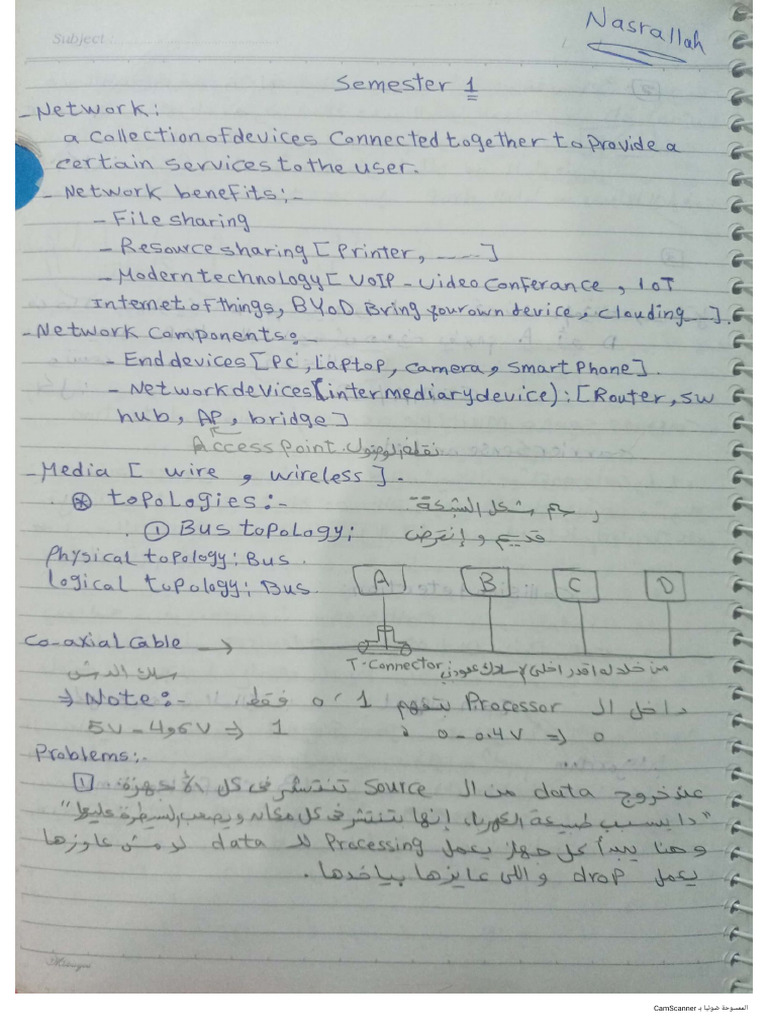 Nasrallah
Subject :
Semester 1
- Network:
a collection of devices Connected together to provide a
certain services to the user.
- Network benefits:-
- File sharing
- Resource sharing [Printer, ......]
- Modern technology [VOIP - Video Conferance, IOT
Internet of things, BYOD Bring your own device, clouding...].
- Network Components:-
- End devices [PC, Laptop, camera, smart Phone].
- Network devices (intermediary device): [Router, SW
hub, AP, bridge]
Access point نقطة الوصول.
- Media [ wire , wireless ].
* topologies:- رسم شكل الشبكة
① Bus topology: قديم وإنقرض
Physical topology: Bus.
Logical topology: Bus.
A B C D
Co-axial Cable →
T-Connector من خلاله اقدر اخلي الاسلاك
سلك الدش
⇒ Note:- داخل ال Processor بتفهم 1 ، 0 فقط.
5V - 4.5V ⇒ 1 ، 0 - 0.4V ⇒ 0
Problems:-
1 عند خروج data من ال Source تنتشر في كل الأجهزة.
"دا بسبب طبيعة الكهرباء، إنها بتنتشر في كل مكان ويصعب السيطرة عليها"
وهنا يبدأ كل جهاز يعمل Processing لل data لو مش عاوزها
يعمل drop واللي عايزها بياخدها.
الممسوحة ضوئيا بـ CamScanner